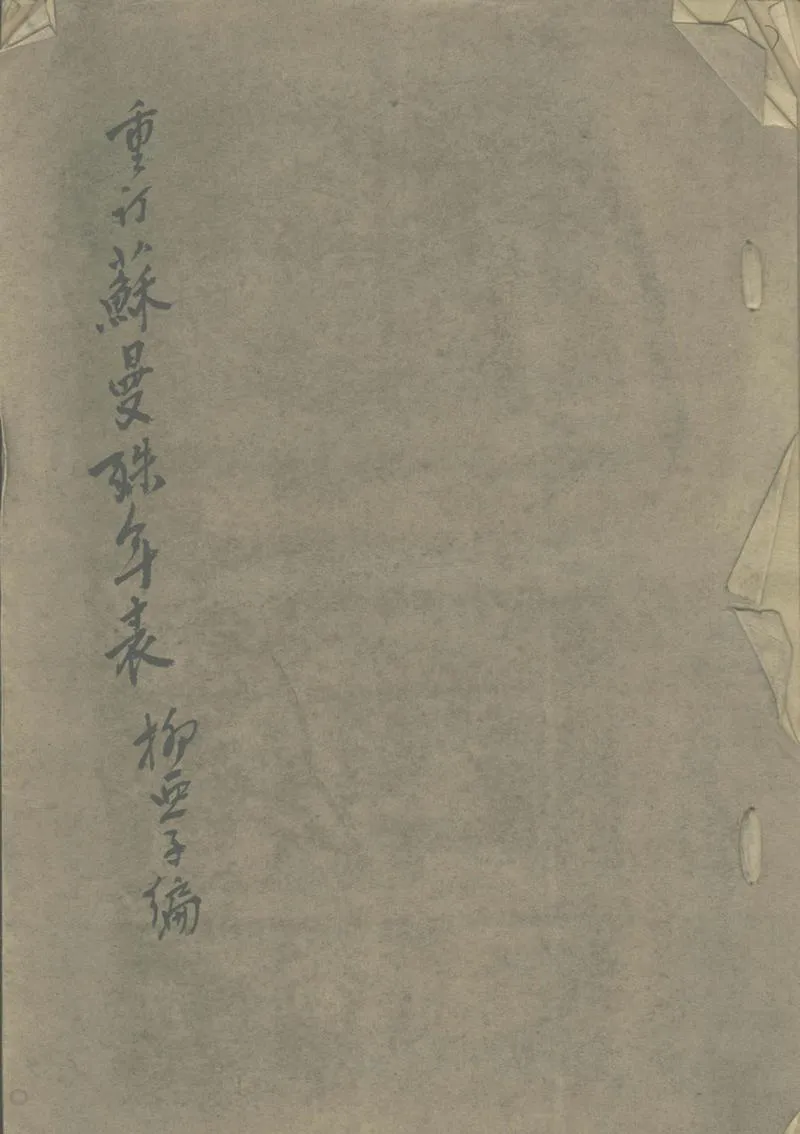 重订蘇曼殊年表
柳亞子编